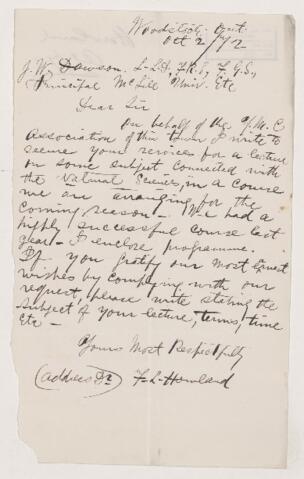 Woodstock Ont.
Oct 2/72
J. W. Dawson, L.L.D, F.R.S, F.G.S.,
Principal McGill Univ. Etc
Dear Sir
On behalf of the Y.M.C
Association of this town I write to
secure your services for a lecture
on some subject connected with
the Natural Sciences, in a course
we are arranging for the
coming season - We had a
highly successful course last
year - I enclose programme.
If you gratify our most earnest
wishes by complying with our
request, please write stating the
subject of your lecture, terms, time
Etc -
Yours Most Respectfully
(address Dr F. L. Howland